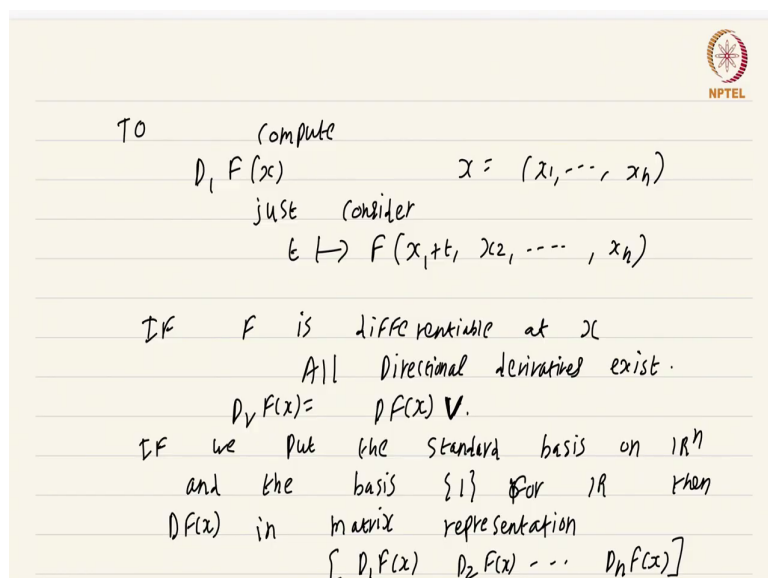 NPTEL
TO compute
D₁ F(x) x = (x1, ---, xn)
just consider
t ↦ F(x₁+t, x2, ----, xn)
IF F is differentiable at x
All Directional derivatives exist.
D_V F(x) = DF(x) V.
IF we put the standard basis on IRⁿ
and the basis {1} for IR then
DF(x) in matrix representation
[ D₁F(x) D₂F(x) --- DnF(x)]